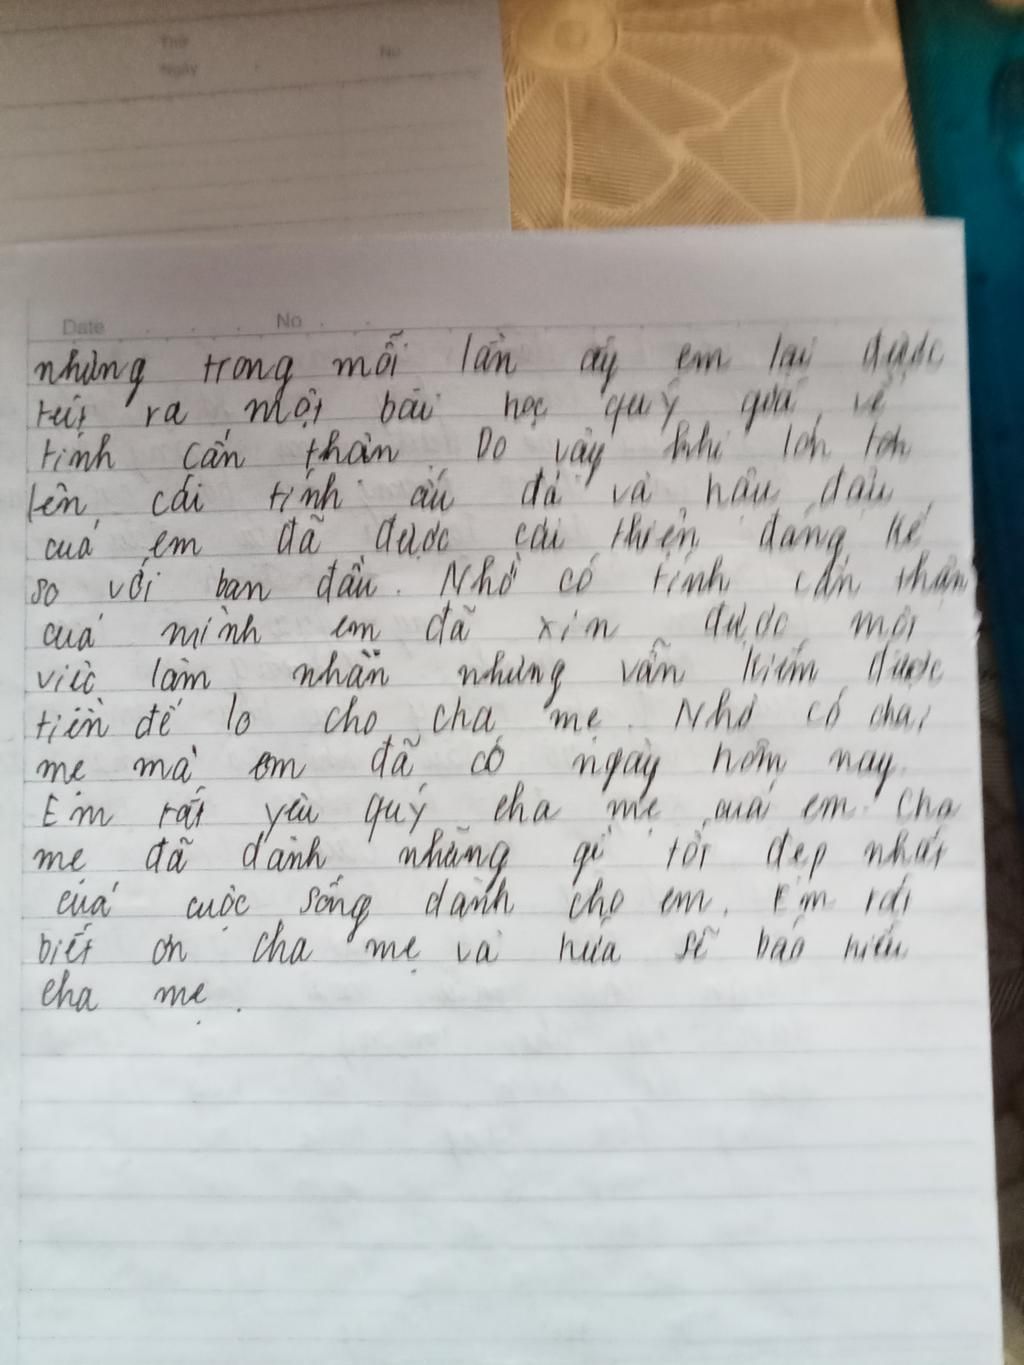 Thứ
Ngày No
Date No
nhưng trong mỗi lần ấy em lại được
rút ra một bài học quý giá về
tính cẩn thận. Do vậy khi lớn lơn
lên cái tính ẩu đả và hậu đậu
của em đã được cải thiện đáng kể
so với ban đầu. Nhờ có tính cẩn thận
của mình em đã xin được một
việc làm nhàn nhưng vẫn kiếm được
tiền để lo cho cha mẹ. Nhờ có cha
mẹ mà em đã có ngày hôm nay.
Em rất yêu quý cha mẹ của em. Cha
mẹ đã dành những gì tốt đẹp nhất
của cuộc sống dành cho em. Em rất
biết ơn cha mẹ và hứa sẽ báo hiếu
cha mẹ.